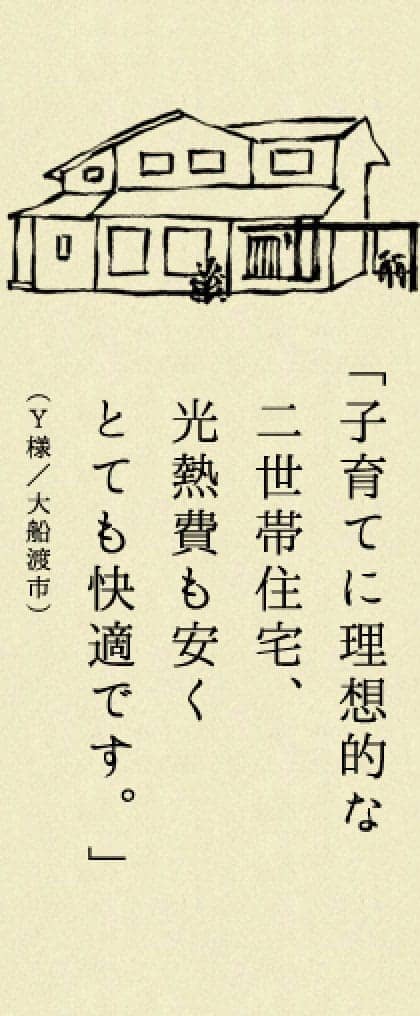 「子育てに理想的な
二世帯住宅、
光熱費も安く
とても快適です。」
（Y様／大船渡市）